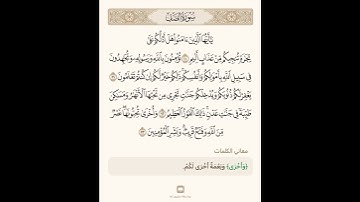 سُورَةُ الصَّفِّ
يَٰٓأَيُّهَا ٱلَّذِينَ ءَامَنُوا۟ هَلْ أَدُلُّكُمْ عَلَىٰ
تِجَٰرَةٍ تُنجِيكُم مِّنْ عَذَابٍ أَلِيمٍ ۝١٠ تُؤْمِنُونَ بِٱللَّهِ وَرَسُولِهِۦ وَتُجَٰهِدُونَ
فِى سَبِيلِ ٱللَّهِ بِأَمْوَٰلِكُمْ وَأَنفُسِكُمْ ۚ ذَٰلِكُمْ خَيْرٌ لَّكُمْ إِن كُنتُمْ تَعْلَمُونَ ۝١١
يَغْفِرْ لَكُمْ ذُنُوبَكُمْ وَيُدْخِلْكُمْ جَنَّٰتٍ تَجْرِى مِن تَحْتِهَا ٱلْأَنْهَٰرُ وَمَسَٰكِنَ
طَيِّبَةً فِى جَنَّٰتِ عَدْنٍ ۚ ذَٰلِكَ ٱلْفَوْزُ ٱلْعَظِيمُ ۝١٢ وَأُخْرَىٰ تُحِبُّونَهَا ۖ نَصْرٌ
مِّنَ ٱللَّهِ وَفَتْحٌ قَرِيبٌ ۗ وَبَشِّرِ ٱلْمُؤْمِنِينَ ۝١٣
معاني الكلمات
﴿وَأُخْرَى﴾ وَنِعْمَةٌ أُخْرَى لَكُمْ.